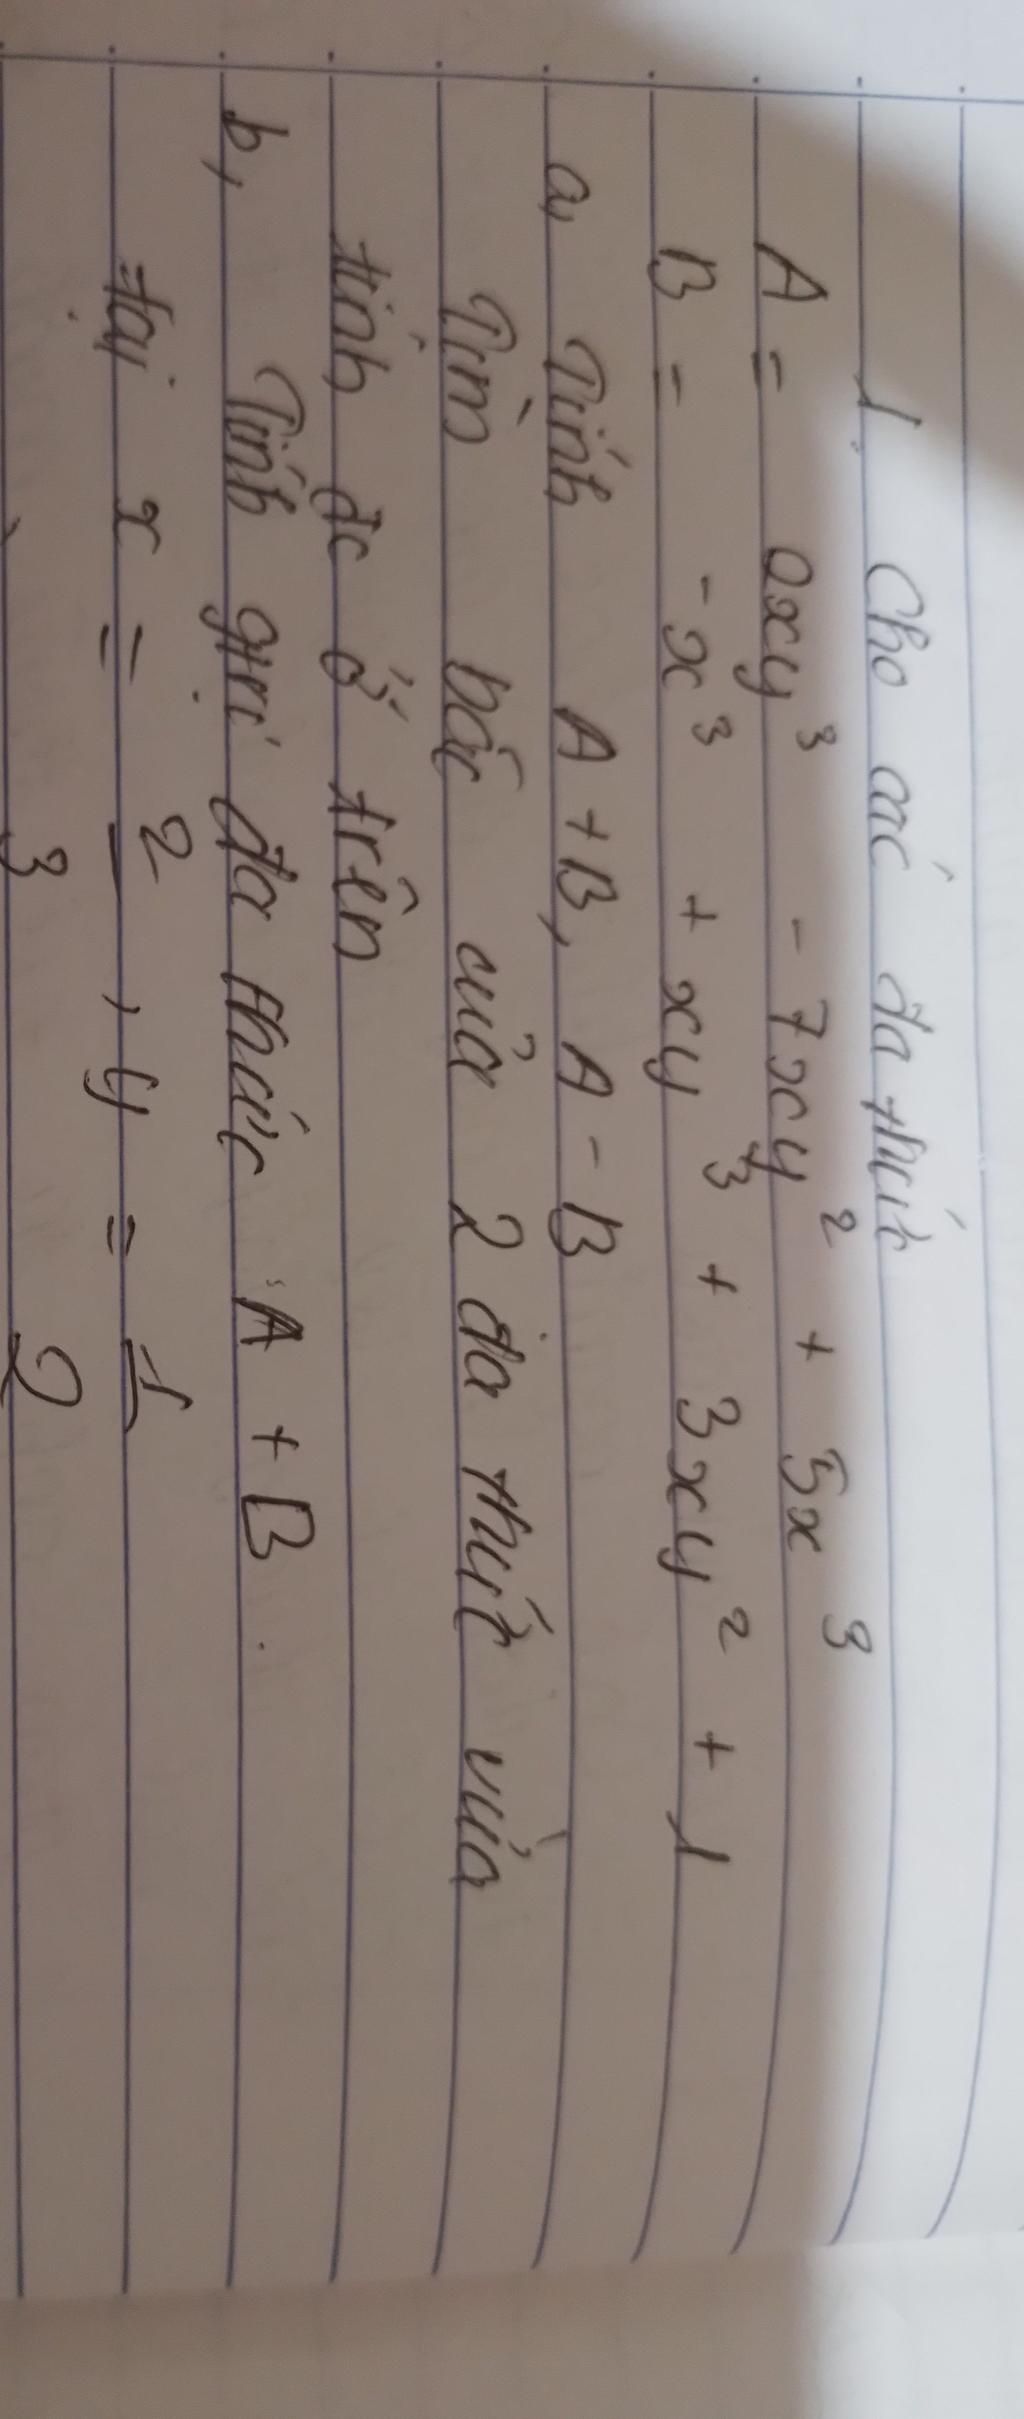 1. Cho các đa thức
A = 0xy³ - 7xy² + 5x³
B = -x³ + xy³ + 3xy² + 1
a, Tính A + B, A - B
Tìm bậc của 2 đa thức vừa
tính đc ở trên
b, Tính gtrị đa thức A + B
tại x = 2/3, y = 1/2